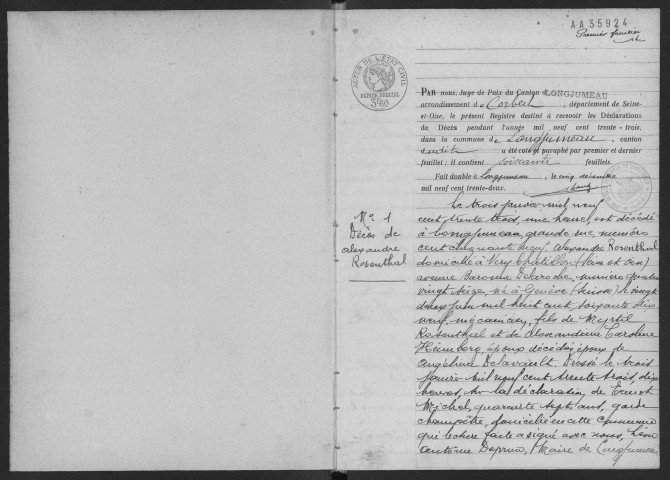 AA35924
Premier feuillet
ACTES DE L'ÉTAT CIVIL
PAPIER SPÉCIAL
3f60
PAR nous, Juge de Paix du Canton de LONGJUMEAU
arrondissement de Corbeil, département de Seine-
et-Oise, le présent Registre destiné à recevoir les Déclarations
de Décès pendant l'année mil neuf cent trente-trois,
dans la commune de Longjumeau, canton
dudit a été coté et paraphé par premier et dernier
feuillet; il contient soixante feuillets.
Fait double à Longjumeau, le cinq décembre
mil neuf cent trente-deux.
No 1
Décès de
Alexandre
Rosenthal
Le trois janvier mil neuf
cent trente trois, une heure, est décédé
à Longjumeau, grande rue, numéro
cent cinquante neuf, Alexandre Rosenthal
domicilié à Viry Châtillon (Seine et Oise)
avenue Baronne Delaroche, numéro quatre
vingt seize, né à Genève (Suisse) le vingt
deux juin mil huit cent soixante dix
neuf, mécanicien, fils de Myrtil
Rosenthal et de Alexandrine Caroline
Heimberg époux décédés, époux de
Angeline Delavault. Dressé le trois
janvier mil neuf cent trente trois, dix
heures, sur la déclaration de
Michel, quarante sept ans, garde
champêtre, domicilié en cette commune
qui lecture faite a signé avec nous, Léon
Antoine, Maire de Longjumeau